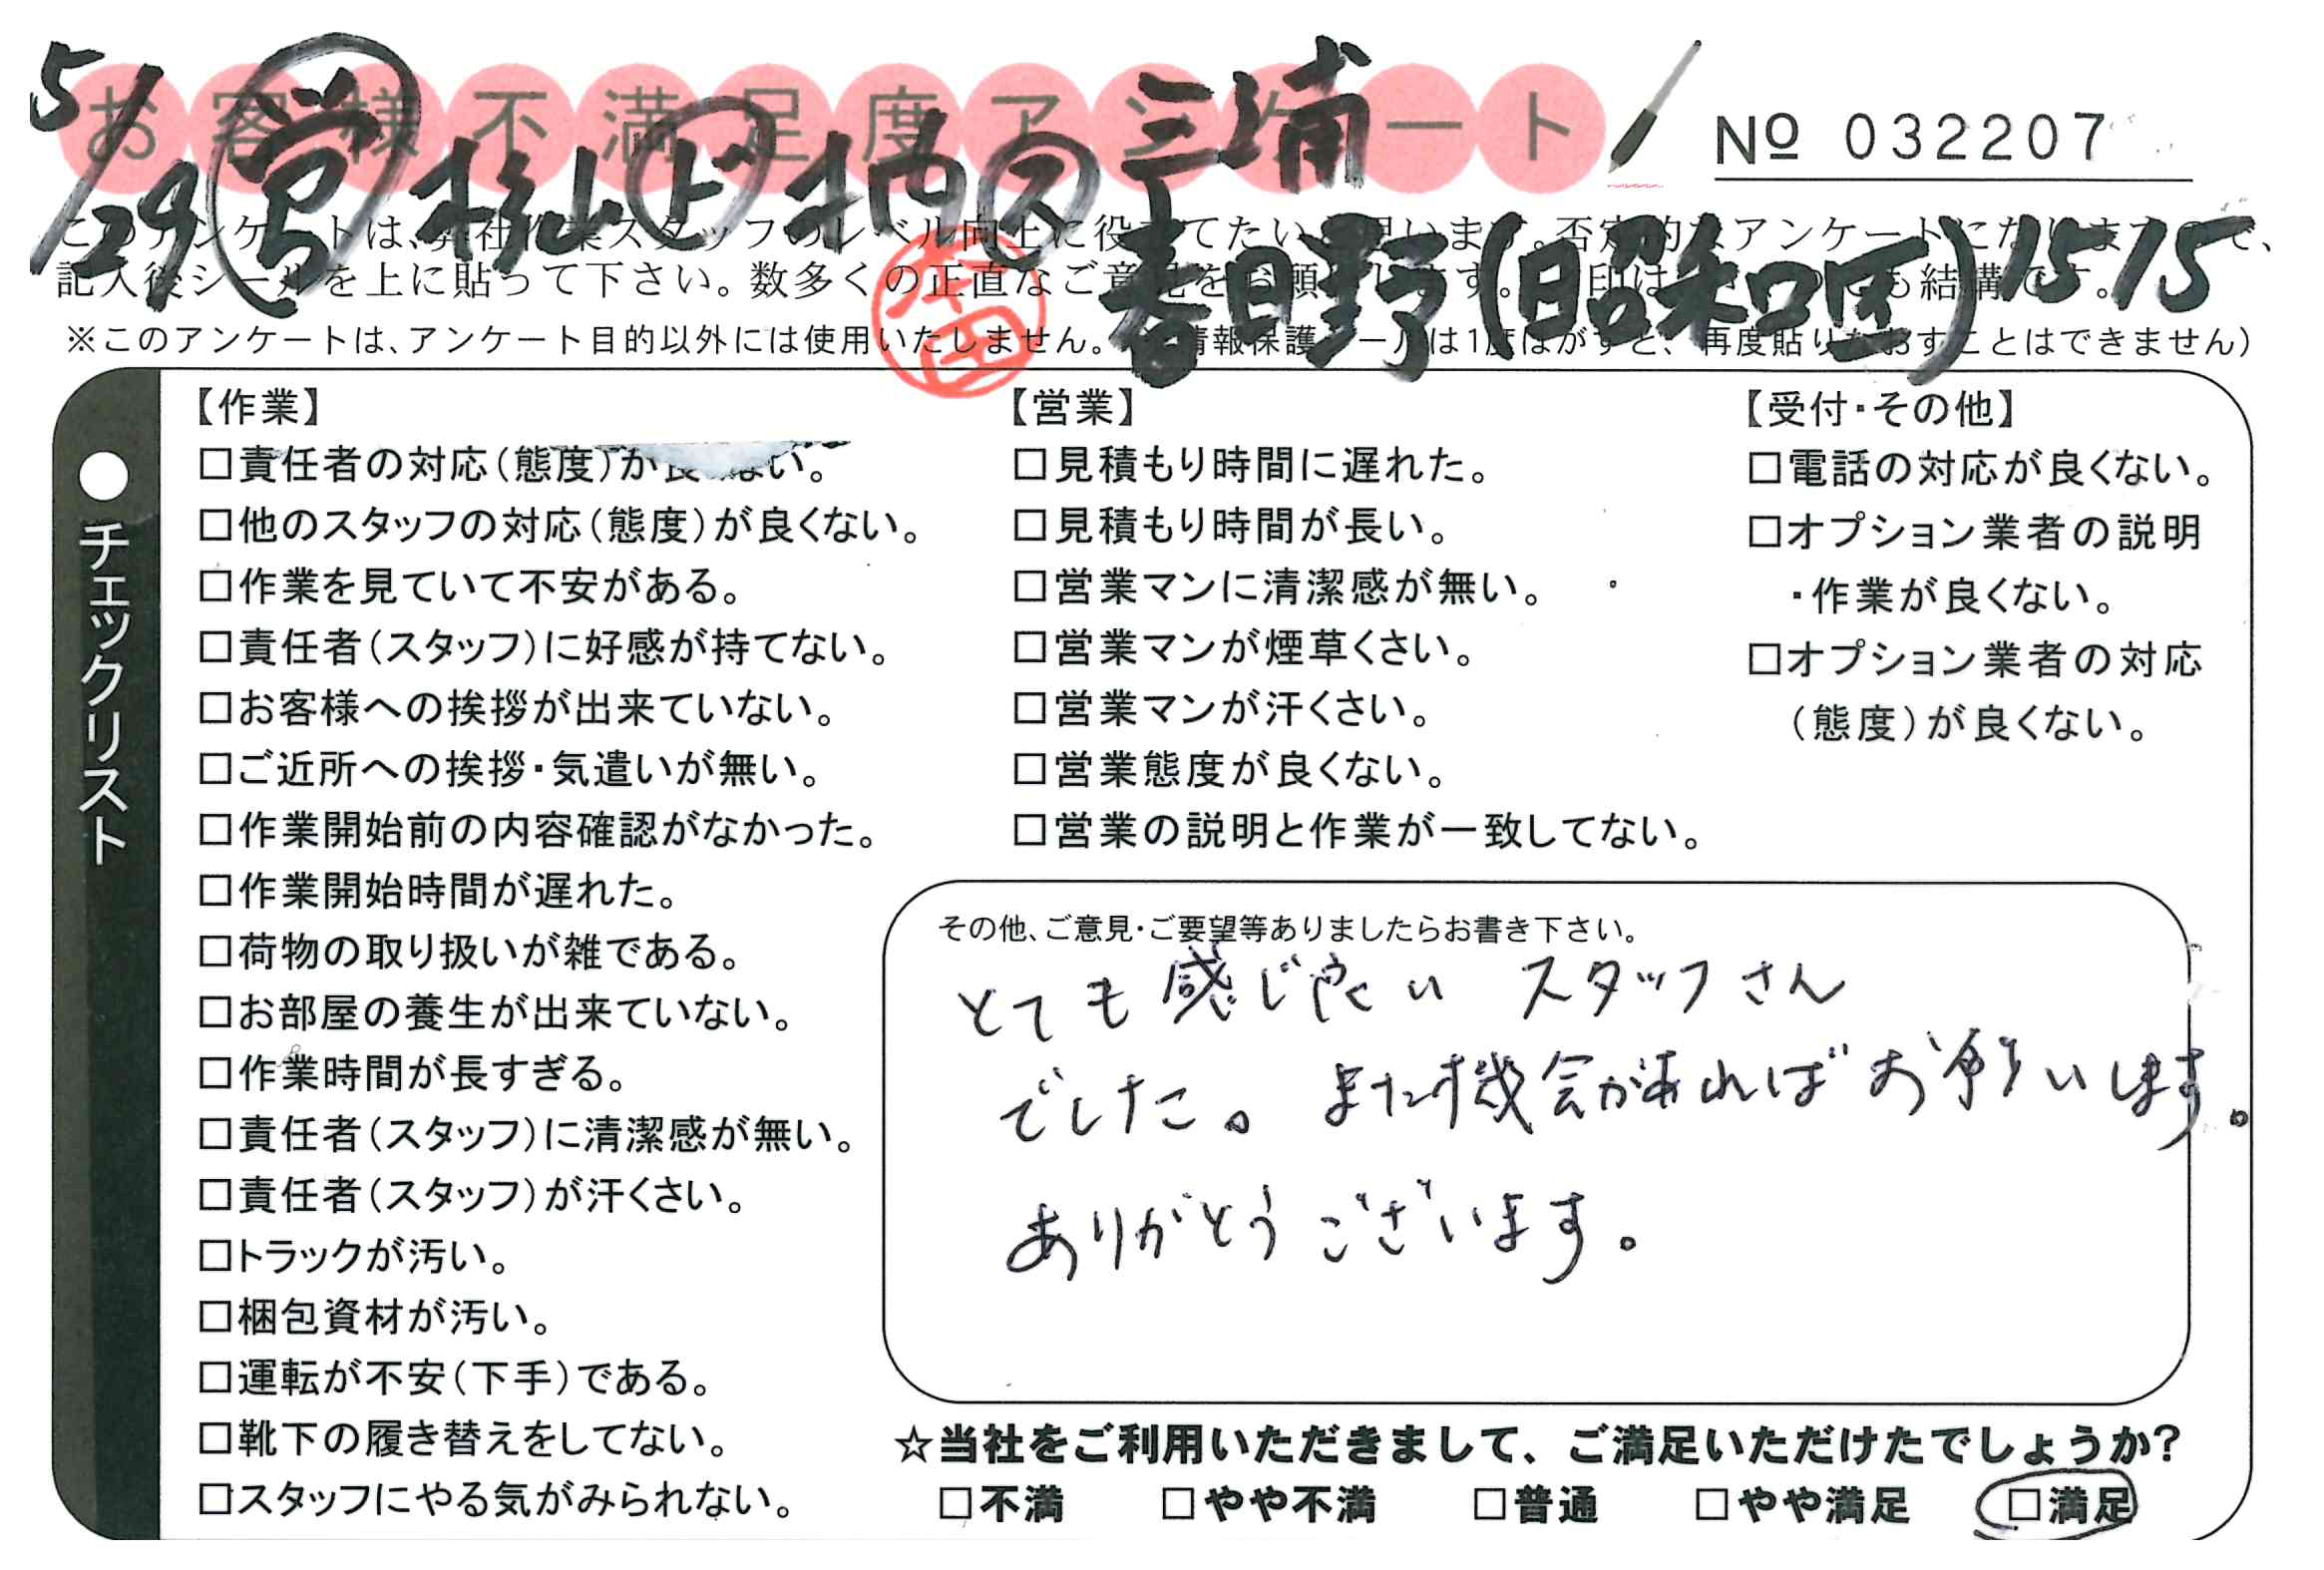 お客様不満足度アンケート
№ 032207
5/29 営 杉山 ド 柏 ス 三浦
春日野(昭和匡)1515
このアンケートは、弊社作業スタッフのレベル向上に役立てたいと思います。否定的なアンケートになりますので、
記入後シールを上に貼って下さい。数多くの正直なご意見をお願いします。 印は も結構です。
※このアンケートは、アンケート目的以外には使用いたしません。(情報保護シールは1度はがすと、再度貼りなおすことはできません)
●チェックリスト
【作業】
□責任者の対応(態度)が良くない。
□他のスタッフの対応(態度)が良くない。
□作業を見ていて不安がある。
□責任者(スタッフ)に好感が持てない。
□お客様への挨拶が出来ていない。
□ご近所への挨拶・気遣いが無い。
□作業開始前の内容確認がなかった。
□作業開始時間が遅れた。
□荷物の取り扱いが雑である。
□お部屋の養生が出来ていない。
□作業時間が長すぎる。
□責任者(スタッフ)に清潔感が無い。
□責任者(スタッフ)が汗くさい。
□トラックが汚い。
□梱包資材が汚い。
□運転が不安(下手)である。
□靴下の履き替えをしてない。
□スタッフにやる気がみられない。
【営業】
□見積もり時間に遅れた。
□見積もり時間が長い。
□営業マンに清潔感が無い。
□営業マンが煙草くさい。
□営業マンが汗くさい。
□営業態度が良くない。
□営業の説明と作業が一致してない。
【受付・その他】
□電話の対応が良くない。
□オプション業者の説明
・作業が良くない。
□オプション業者の対応
(態度)が良くない。
その他、ご意見・ご要望等ありましたらお書き下さい。
とても感じ良い スタッフさん
でした。また機会があればお願いします。
ありがとうございます。
☆当社をご利用いただきまして、ご満足いただけたでしょうか?
□不満 □やや不満 □普通 □やや満足 □満足